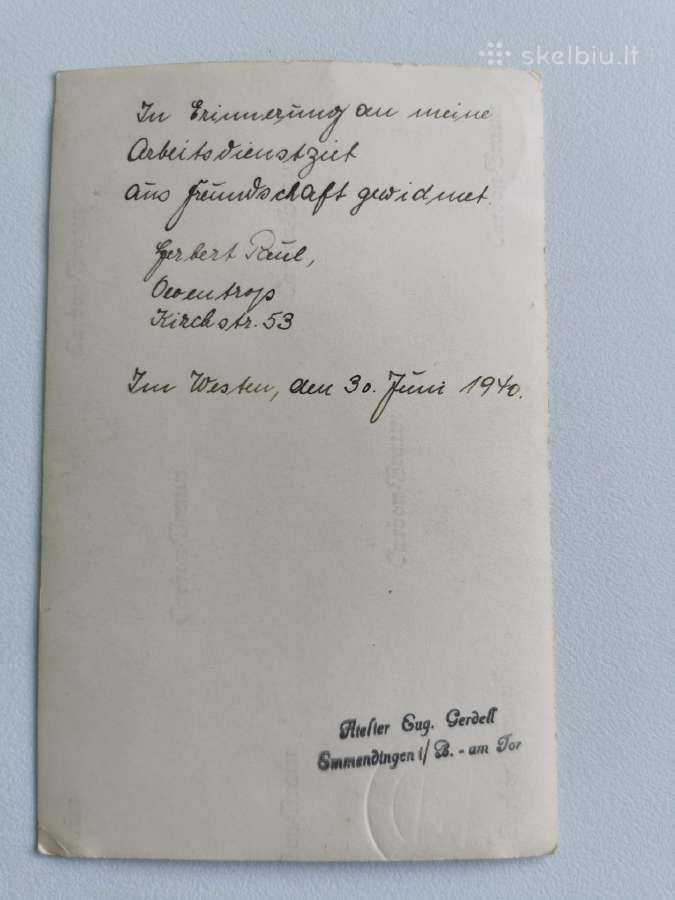 skelbiu.lt
In Erinnerung an meine
Arbeitsdienstzeit
aus Freundschaft gewidmet.
Herbert Paul,
Oeventrop
Kirchstr. 53
Im Westen, den 30. Juni 1940.
Atelier Eug. Gerdell
Emmendingen i/B. - am Tor